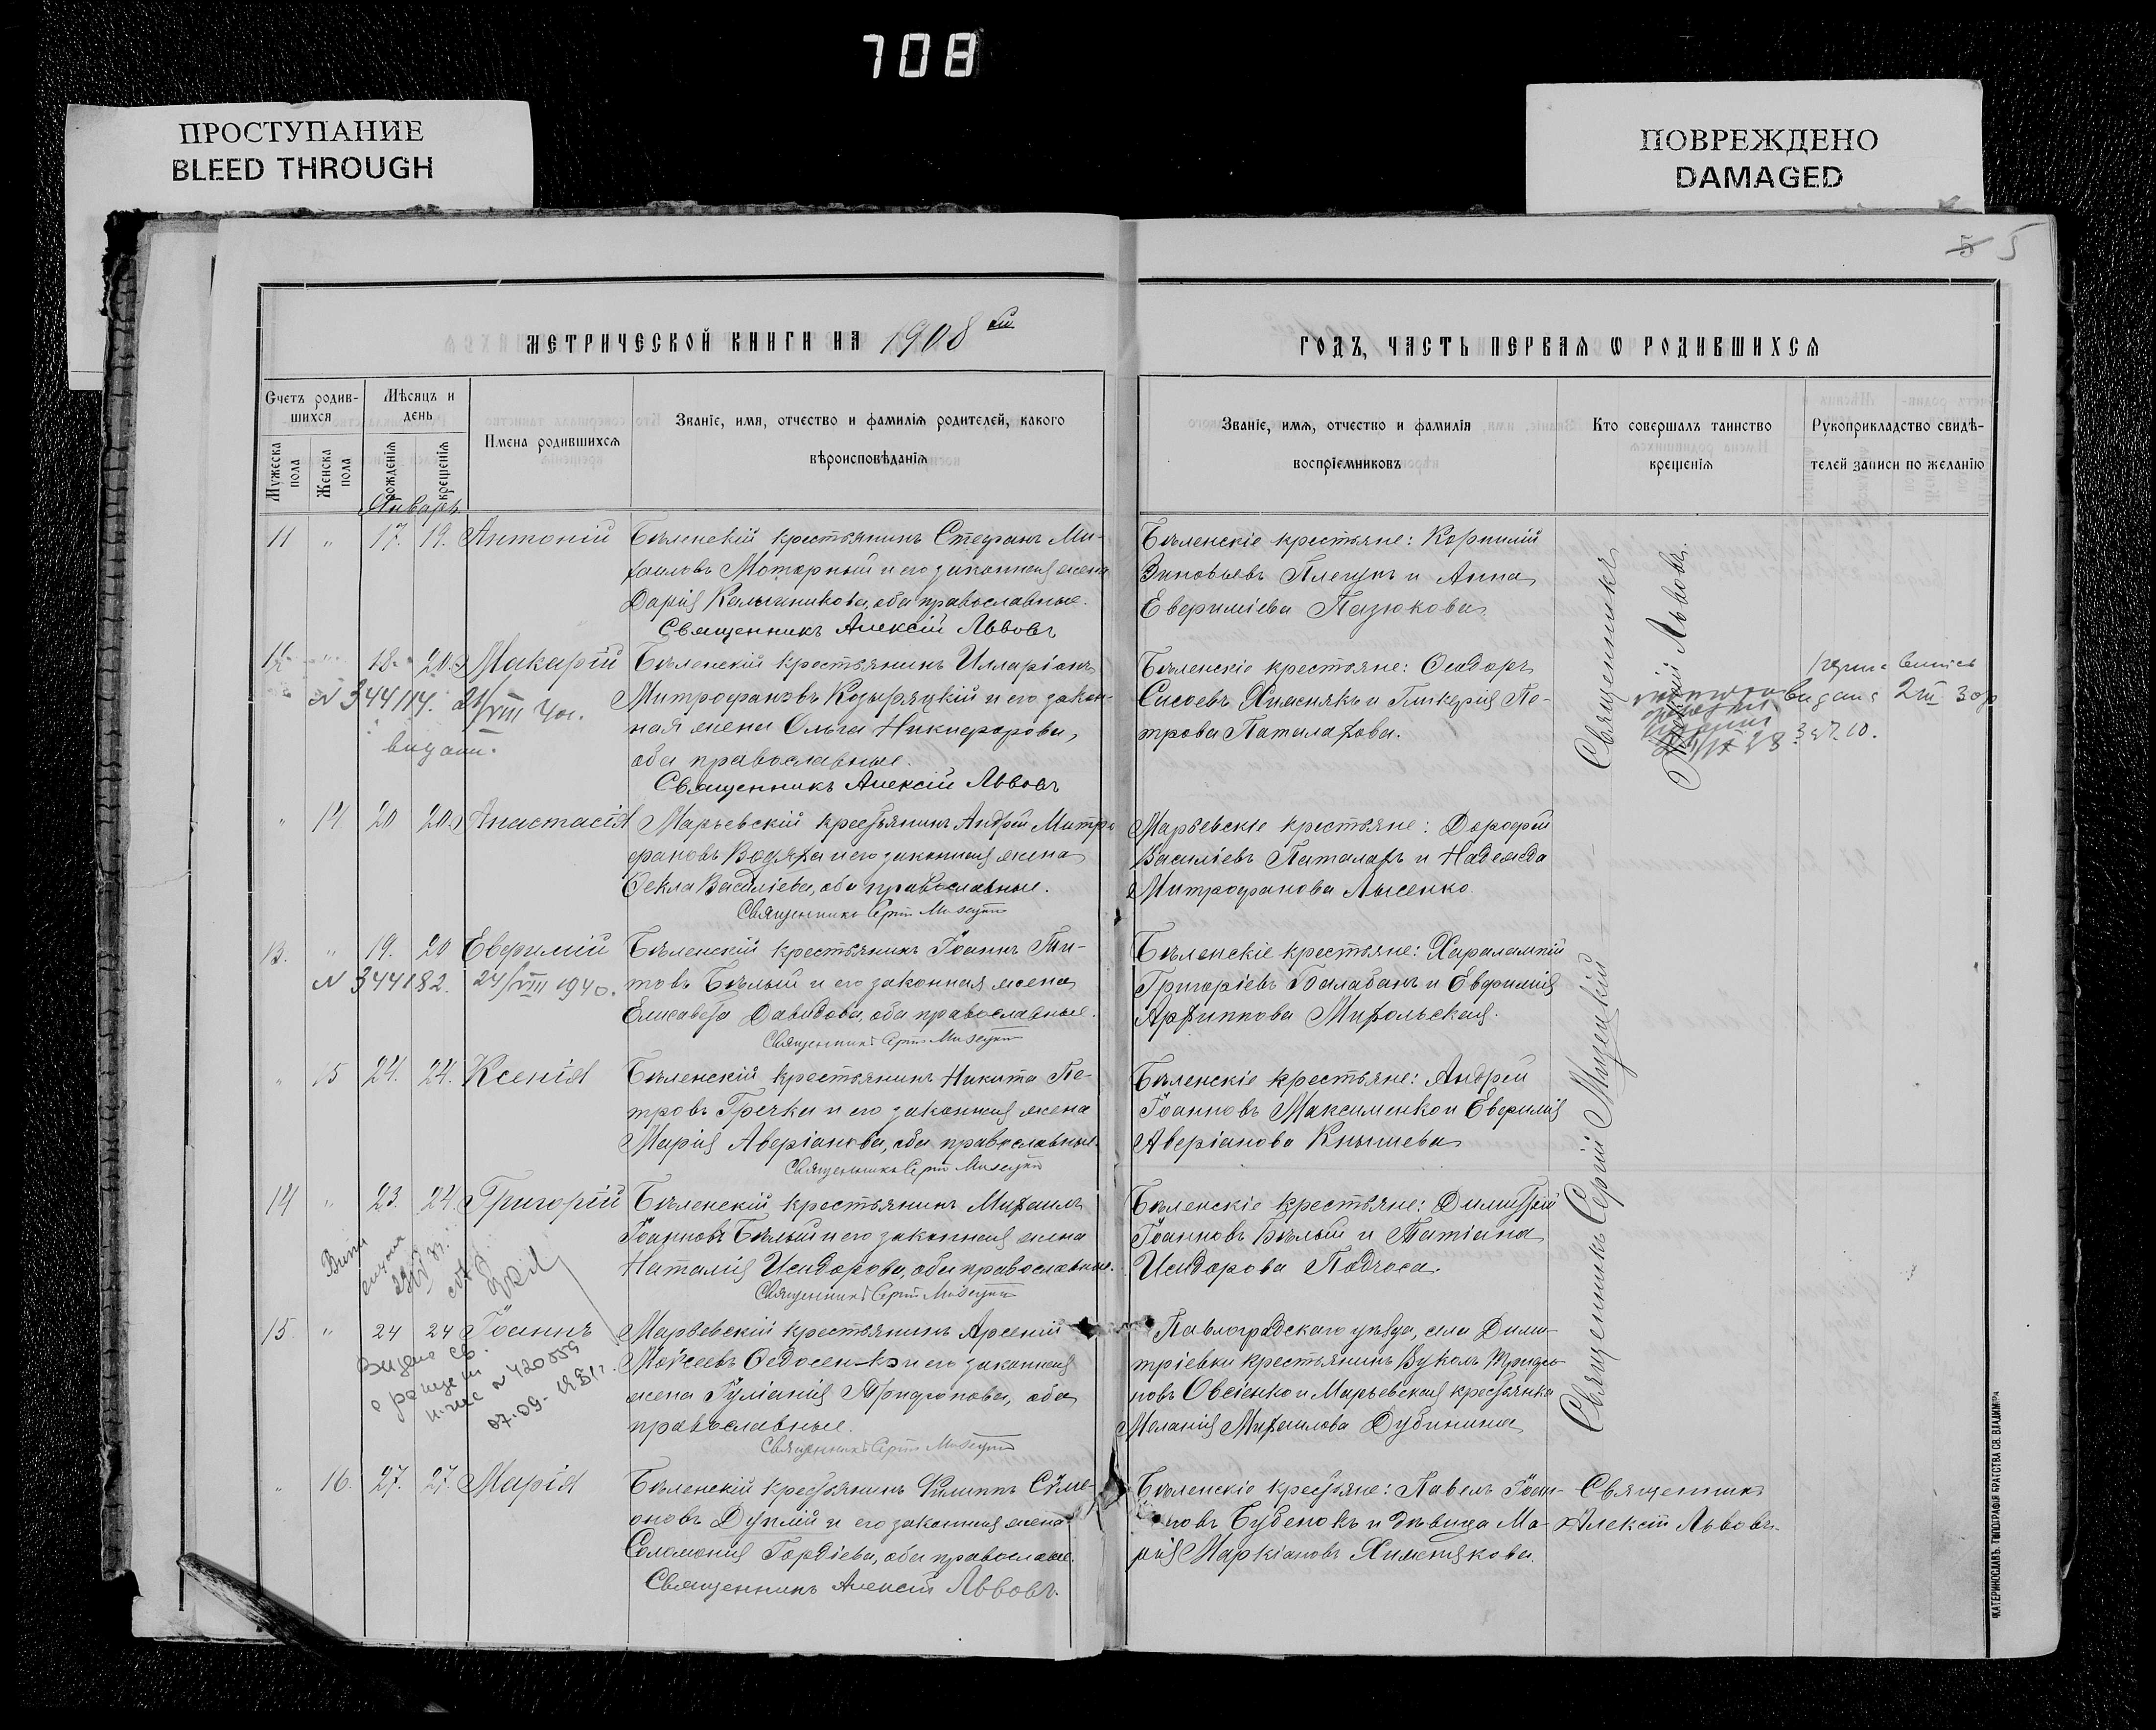 708
ПРОСТУПАНИЕ
BLEED THROUGH
ПОВРЕЖДЕНО
DAMAGED
5 5
МЕТРИЧЕСКОЙ КНИГИ НА 1908 ый
ГОДЪ, ЧАСТЬ ПЕРВАЯ Ѡ РОДИВШИХСЯ
Счетъ родив-
шихся
Мужеска
пола
Женска
пола
Мѣсяцъ и
день
рожденія
крещенія
Имена родившихся
Званіе, имя, отчество и фамилія родителей, какого
вѣроисповѣданія
Званіе, имя, отчество и фамилія
воспріемниковъ
Кто совершалъ таинство
крещенія
Рукоприкладство свидѣ-
телей записи по желанію
Январь
11 " 17. 19. Антоній
Бѣленскій крестьянинъ Стефанъ Ми-
хаиловъ Моторный и его законная жена
Дарія Калинникова, оба православные.
Священникъ Алексій Львовъ
Бѣленскіе крестьяне: Корнилій
Зиновьевъ Плегунъ и Анна
Евфиміева Пазюкова
12 18. 20. Макарій
N 344114. 21/VIII 40г.
видано.
Бѣленскій крестьянинъ Илларіонъ
Митрофановъ Козыряцкій и его закон-
ная жена Ольга Никифорова,
оба православные.
Священникъ Алексій Львовъ
Бѣленскіе крестьяне: Ѳеодоръ
Сисоевъ Хименякъ и Гликерія Пе-
трова Паталахова.
Священникъ
Алексій Львовъ.
видана 2 30р
" 14 20 20. Анастасія
Марьевскій крестьянинъ Андрей Митро
фановъ Водяха и его законная жена
Ѳекла Василіева, оба православные.
Священникъ Сергій Мизецкій
Марьевскіе крестьяне: Дороѳей
Василіевъ Паталахъ и Надежда
Митрофанова Лысенко.
13. " 19. 20 Евфимій
N 344182. 24/VIII 1940.
Бѣленскій крестьянинъ Іоаннъ Ти-
товъ Бѣлый и его законная жена
Елисавета Давидова, оба православные.
Священникъ Сергій Мизецкій
Бѣленскіе крестьяне: Харалампій
Григоріевъ Балабанъ и Евфимія
Архиппова Мирольская.
" 15 24. 24. Ксенія
Бѣленскій крестьянинъ Никита Пе-
тровъ Гречка и его законная жена
Марія Аверіанова, оба православные.
Священникъ Сергій Мизецкій
Бѣленскіе крестьяне: Андрей
Іоанновъ Максименко и Евфимія
Аверіанова Кнышева
14 " 23. 24. Григорій
Бѣленскій крестьянинъ Михаилъ
Іоанновъ Бѣлый и его законная жена
Наталія Исидорова, оба православные.
Священникъ Сергій Мизецкій
Бѣленскіе крестьяне: Димитрій
Іоанновъ Бѣлый и Татіана
Исидорова Подчоса.
Священникъ Сергій Мизецкій
15 " 24 24 Іоаннъ
Видано св.
N 420559
07.09.
Марьевскій крестьянинъ Арсеній
Моѵсеевъ Ѳедосенко и его законная
жена Іуліанія Трифонова, оба
православные.
Священникъ Сергій Мизецкій
Павлоградскаго уѣзда, села Дими-
тріевки крестьянинъ Вуколъ Трифо-
новъ Овсіенко и Марьевская крестьянка
Меланія Михаилова Дубинина
" 16. 27. 27. Марія
Бѣленскій крестьянинъ Филиппъ Сѵме-
оновъ Дуплій и его законная жена
Соломонія Гордіева, оба православные.
Священникъ Алексій Львовъ.
Бѣленскіе крестьяне: Павелъ Іоан-
новъ Бубенокъ и дѣвица Ма-
рія Маркіановъ Хименякова.
Священникъ
Алексій Львовъ.
ЕКАТЕРИНОСЛАВЪ. ТИПОГРАФІЯ БРАТСТВА СВ. ВЛАДИМІРА